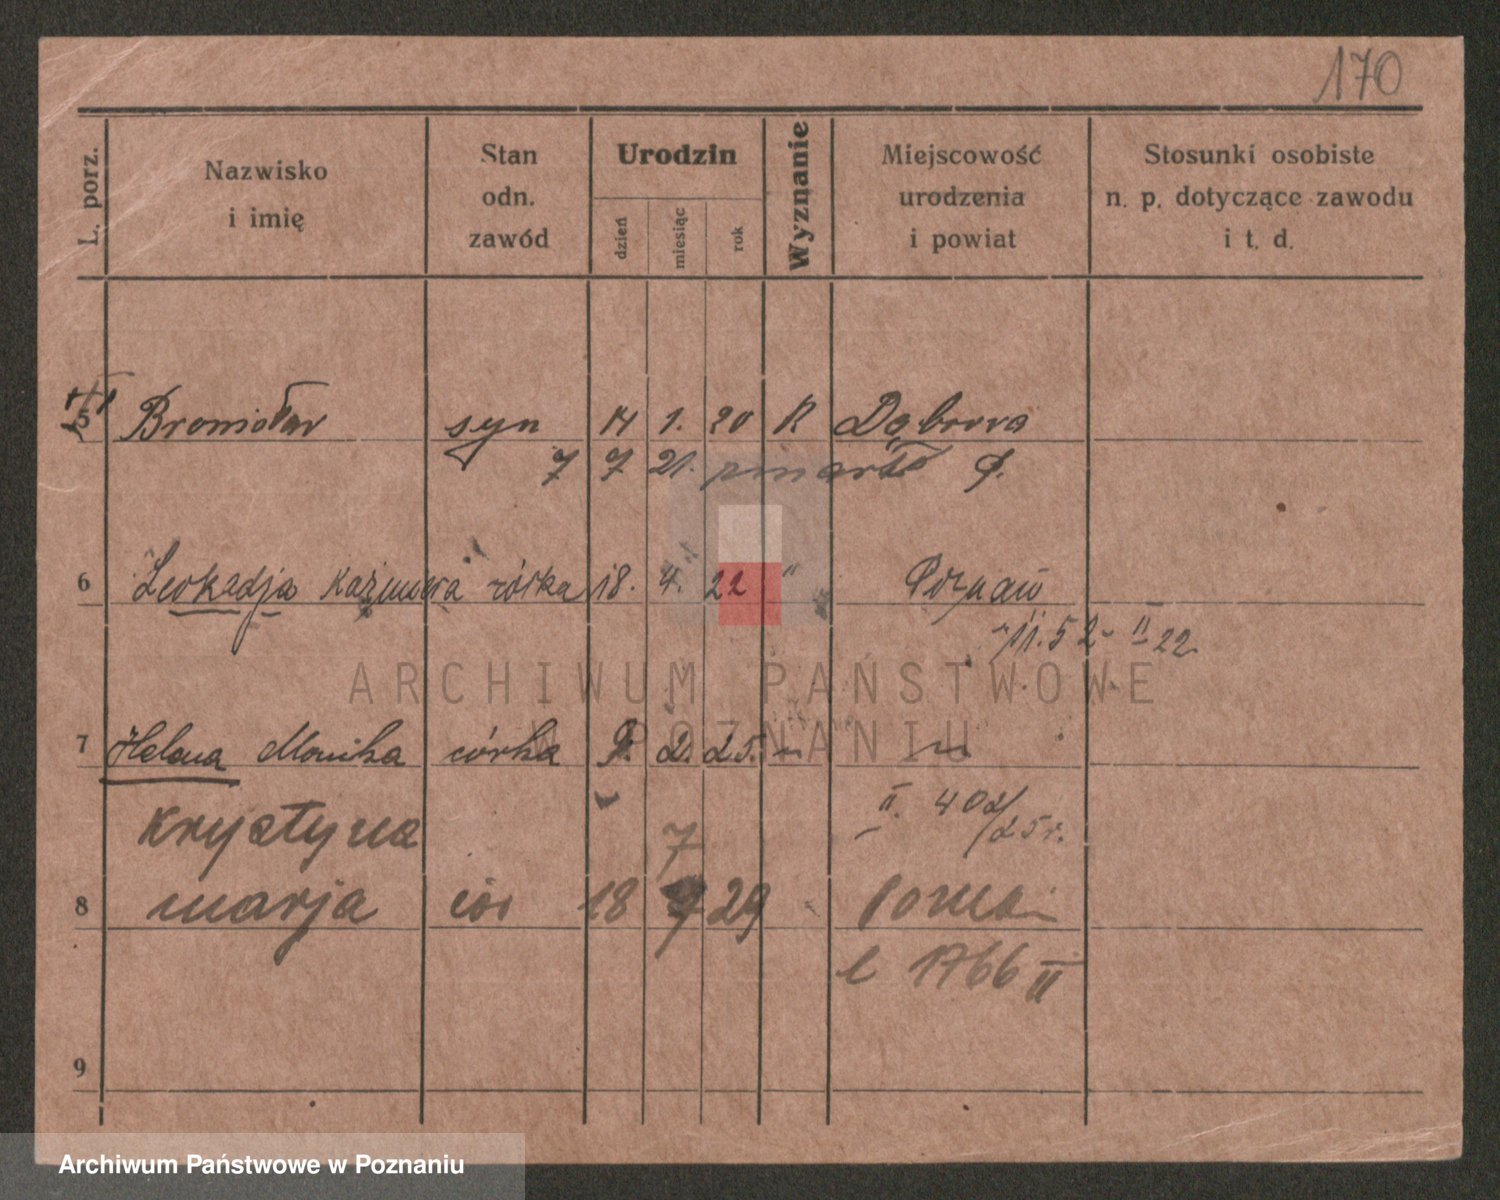 170
L. porz.
Nazwisko
i imię
Stan
odn.
zawód
Urodzin
dzień
miesiąc
rok
Wyznanie
Miejscowość
urodzenia
i powiat
Stosunki osobiste
n. p. dotyczące zawodu
i t. d.
5 Bronisław syn 14 1. 20 R Dąbrowa
7 7 21. zmarło P.
6 Leokadja Kazimiera córka 18. 4. 22 " Poznań
11. 52 - II 22
ARCHIWUM PAŃSTWOWE
W POZNANIU
7 Helena Monika córka 9. 2. 25. " "
II. 402/25 r.
Krystyna
7
8 marja cór 18 9 29 Pozna
l 1766 II
9
Archiwum Państwowe w Poznaniu